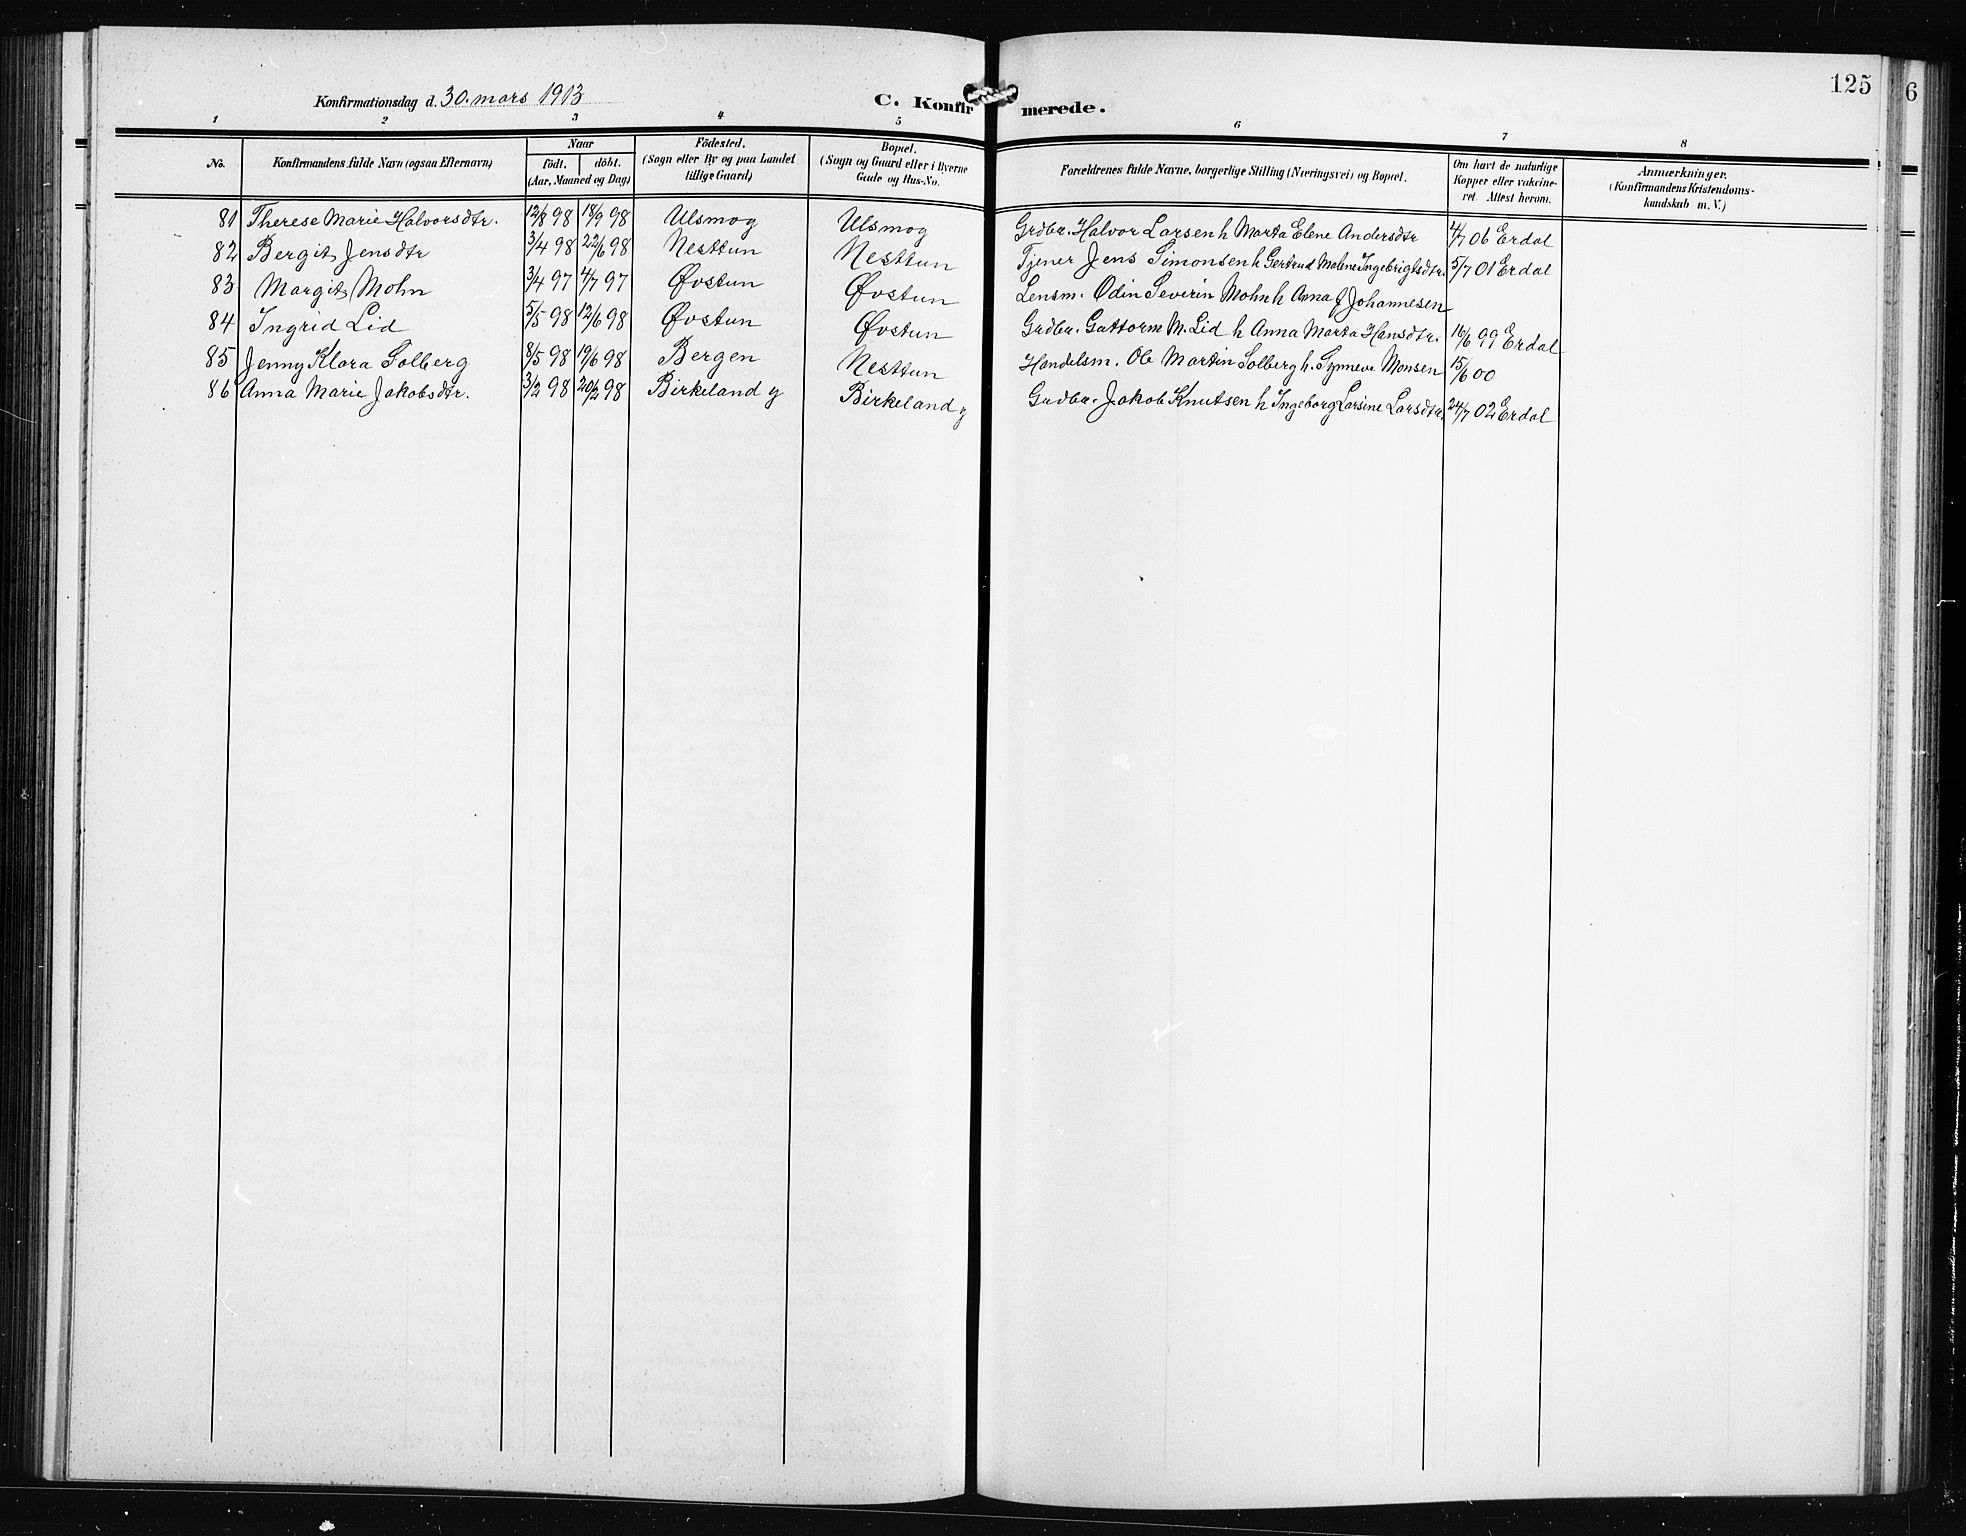 Konfirmationsdag d. 30. mars 1913
C. Konfirmerede.
125
6
1 2 3 4 5 6 7 8
No.
Konfirmandens fulde Navn (ogsaa Efternavn)
Naar
födt. döbt.
(Aar, Maaned og Dag)
Födested.
(Sogn eller By og paa Landet
tillige Gaard)
Bopæl.
(Sogn og Gaard eller i Byerne
Gade og Hus-No.
Forældrenes fulde Navne, borgerlige Stilling (Næringsvei) og Bopæl.
Om havt de naturlige
Kopper eller vakcine-
ret. Attest herom.
Anmærkninger.
(Konfirmandens Kristendoms-
kundskab m. V.)
81 Therese Marie Halvorsdtr. 12/8 98 18/9 98 Ulsmog Ulsmog Grdbr. Halvor Larsen h Marta Elene Andersdtr 4/7 06 Erdal
82 Bergit Jensdtr 3/4 98 22/6 98 Nesttun Nesttun Tjener Jens Simonsen h Gertrud Malene Ingebrigtsdtr. 5/7 01 Erdal
83 Margit Mohn 3/4 97 4/7 97 Øvstun Øvstun Lensm. Odin Severin Mohn h Anna J Johannesen
84 Ingrid Lid 5/5 98 12/6 98 Øvstun Øvstun Grdbr. Guttorm M. Lid h Anna Marta Hansdtr. 16/6 99 Erdal
85 Jenny Klara Solberg 8/5 98 19/6 98 Bergen Nesttun Handelsm. Ole Martin Solberg h. Synneve Monsen 15/6 00
86 Anna Marie Jakobsdtr. 3/2 98 20/2 98 Birkeland y Birkeland y Grdbr. Jakob Knutsen h Ingeborg Larsine Larsdtr. 24/7 02 Erdal